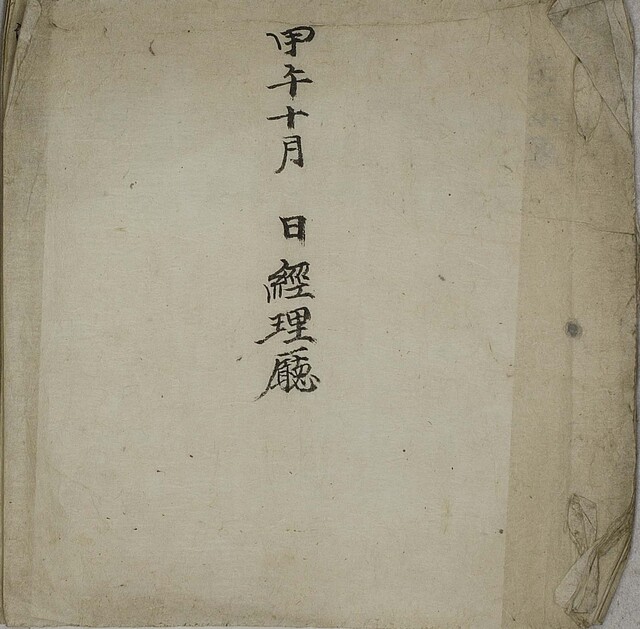 甲午十月 日經理廳